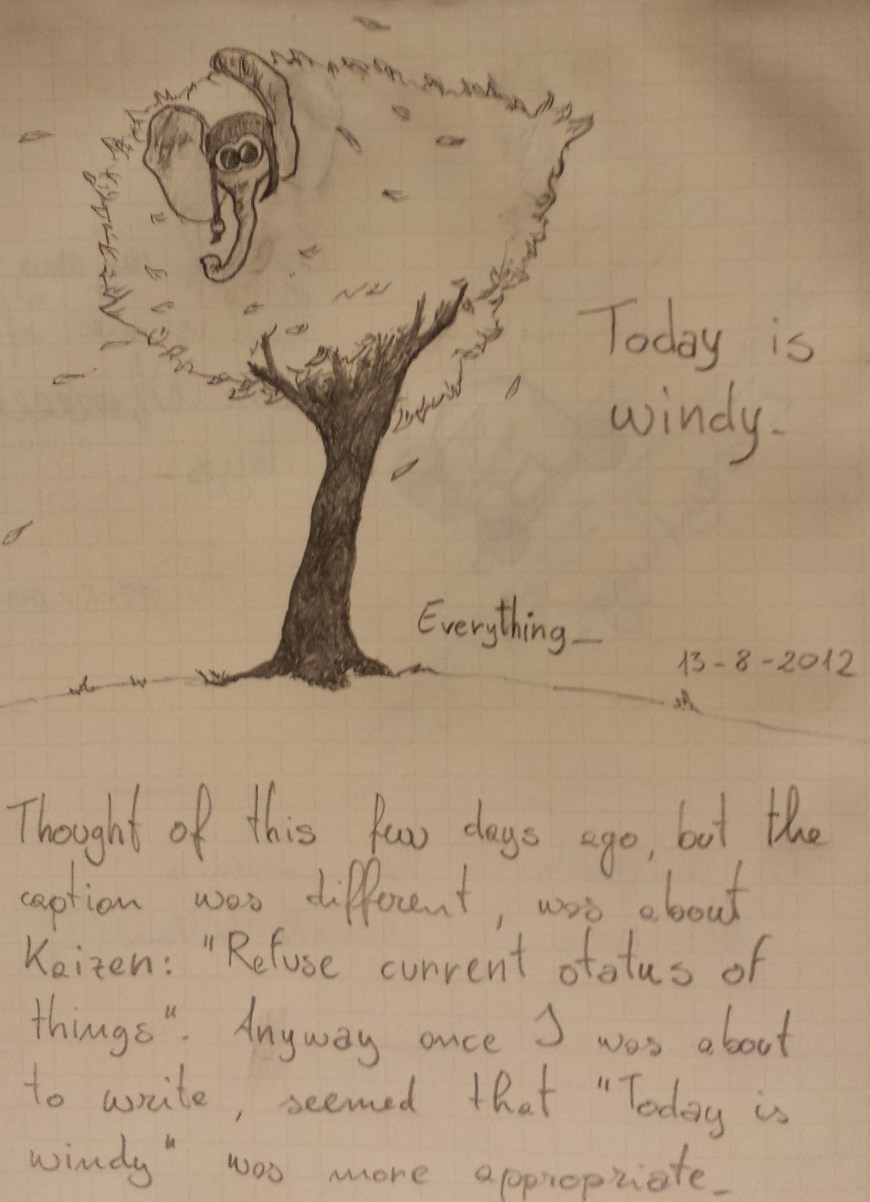 Today is
windy.
Everything_
13-8-2012
Thought of this few days ago, but the
caption was different, was about
Kaizen: "Refuse current status of
things". Anyway once I was about
to write, seemed that "Today is
windy" was more appropriate_